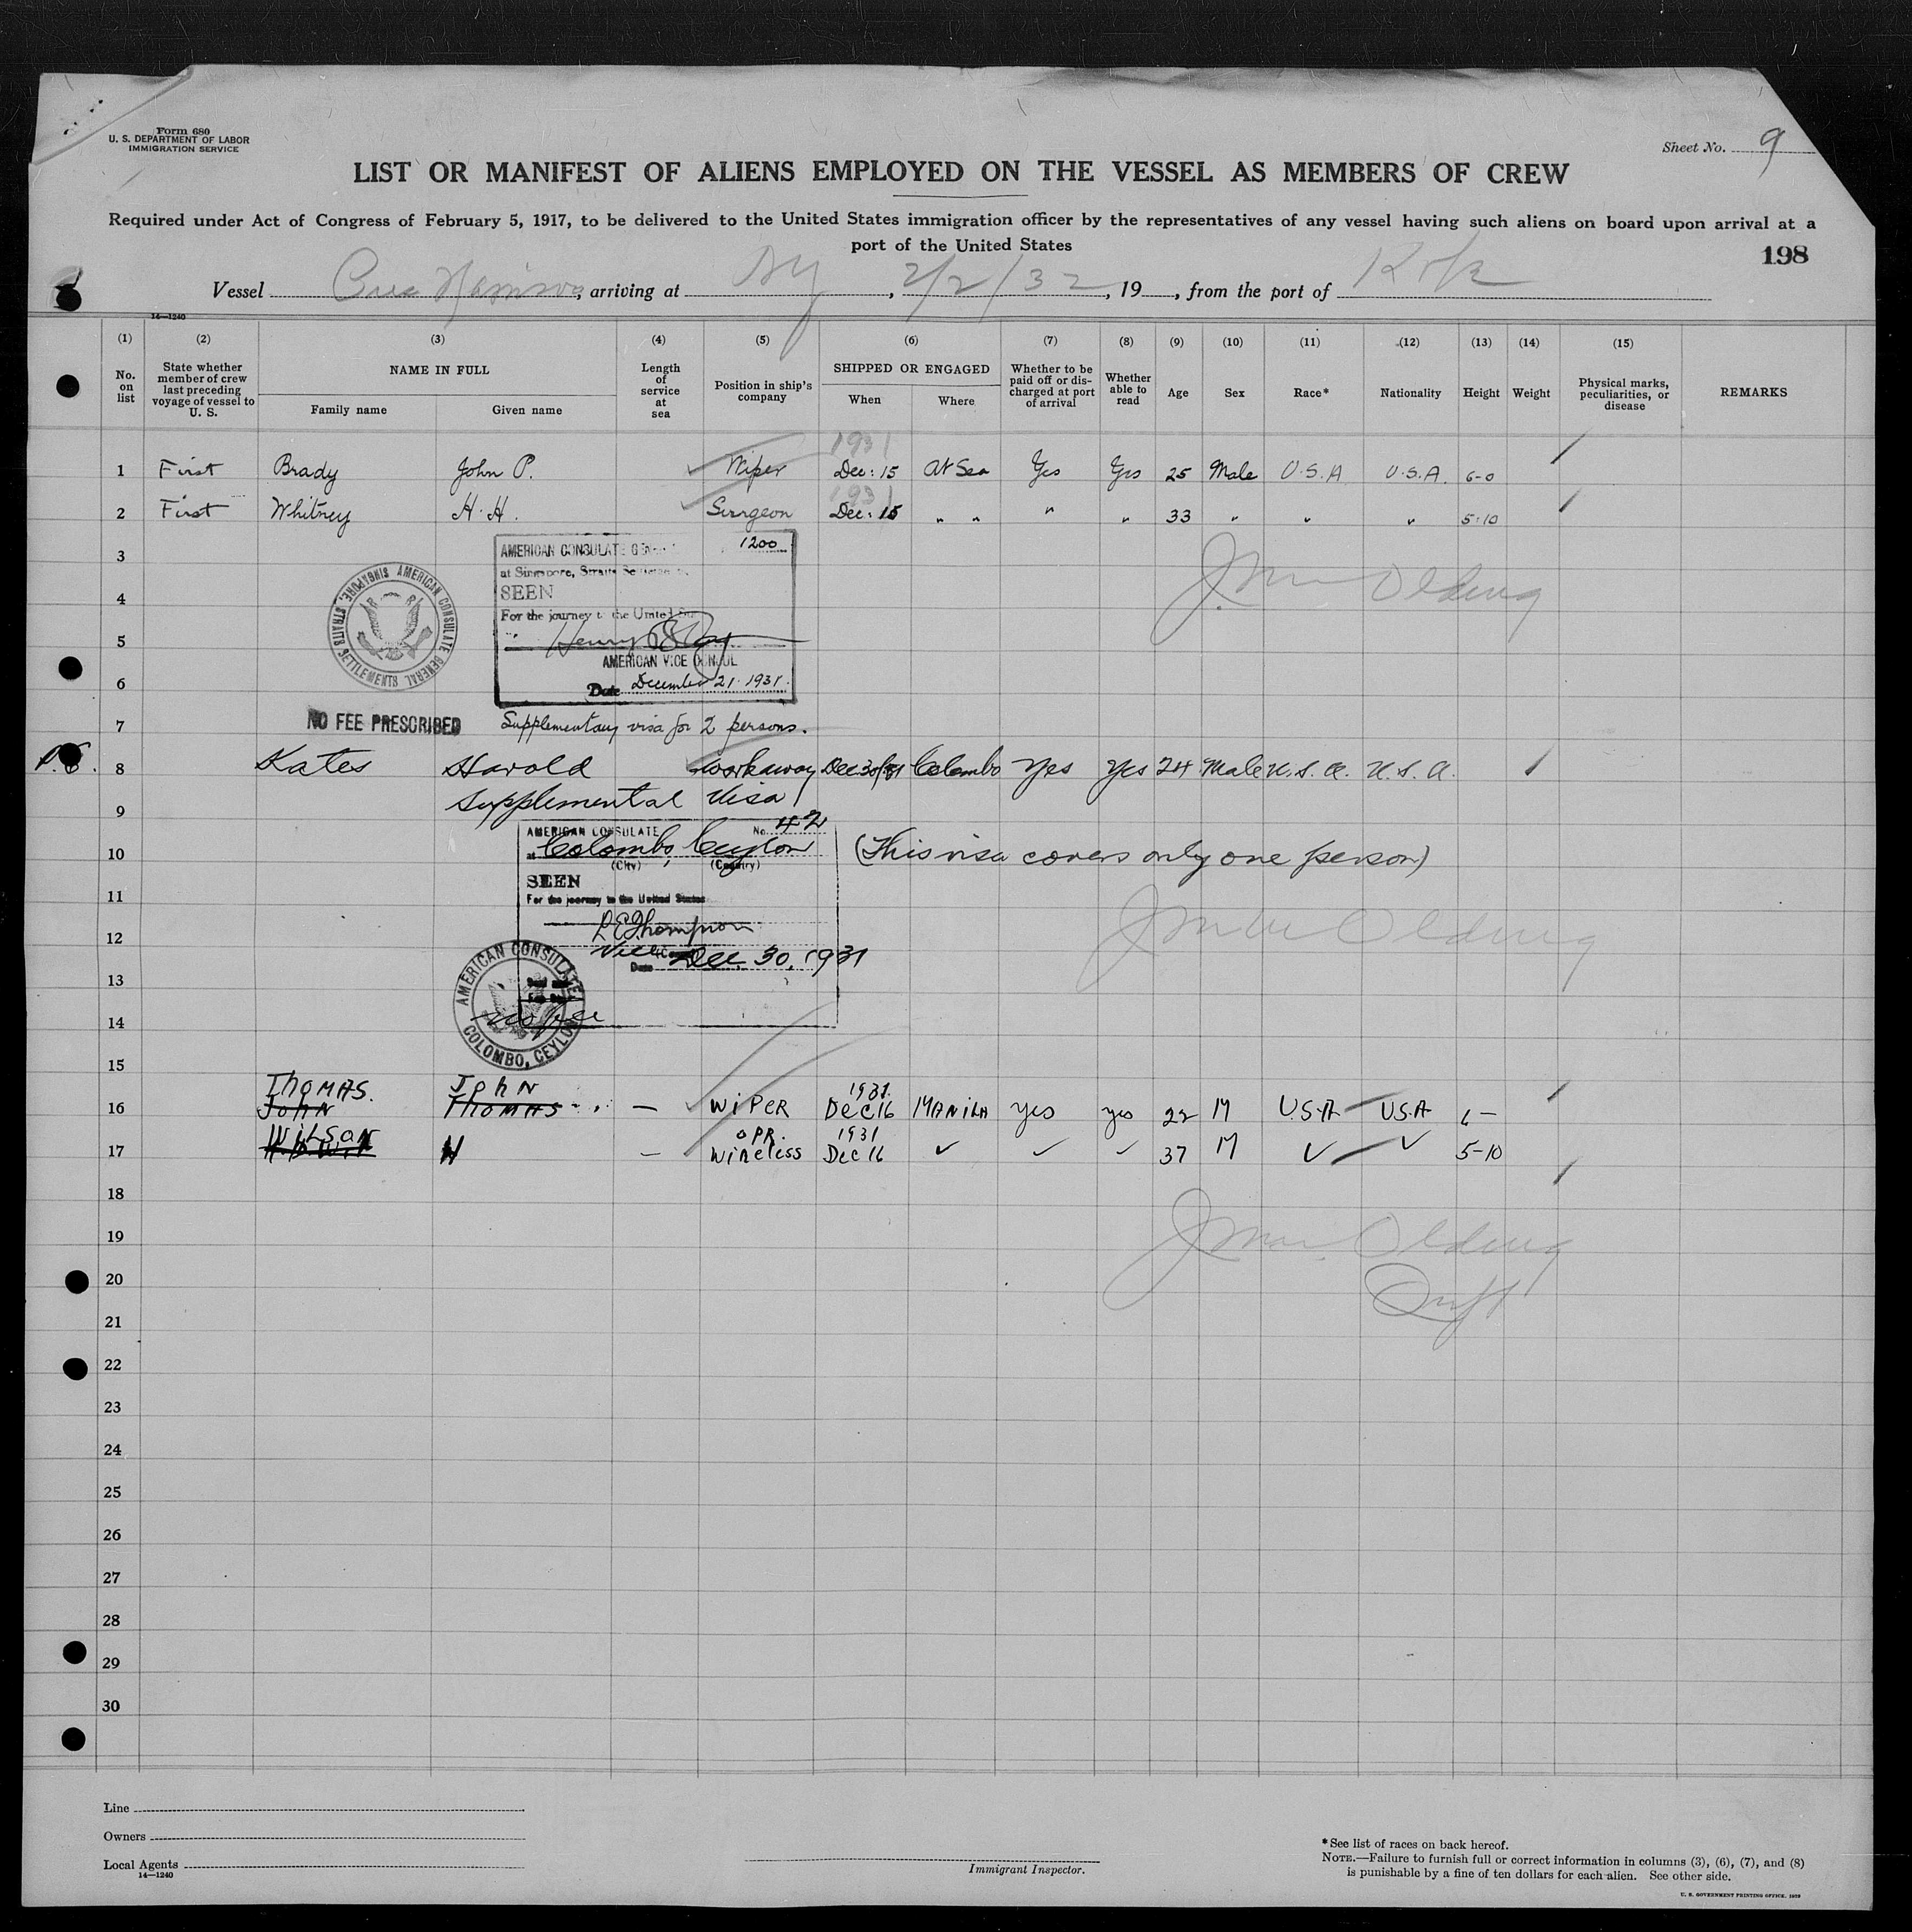 Form 680
U. S. DEPARTMENT OF LABOR
IMMIGRATION SERVICE
Sheet No. 9
LIST OR MANIFEST OF ALIENS EMPLOYED ON THE VESSEL AS MEMBERS OF CREW
Required under Act of Congress of February 5, 1917, to be delivered to the United States immigration officer by the representatives of any vessel having such aliens on board upon arrival at a
port of the United States
198
Vessel , arriving at NY , 2/2/32 , 19 , from the port of
14—1240
(1) (2) (3) (4) (5) (6) (7) (8) (9) (10) (11) (12) (13) (14) (15)
No. on list
State whether member of crew last preceding voyage of vessel to U. S.
NAME IN FULL
Family name Given name
Length of service at sea
Position in ship's company
SHIPPED OR ENGAGED
When Where
Whether to be paid off or discharged at port of arrival
Whether able to read
Age Sex Race* Nationality Height Weight
Physical marks, peculiarities, or disease
REMARKS
1931
1 First Brady John P. Wiper Dec: 15 At Sea Yes Yes 25 Male U.S.A U.S.A. 6-0
1931
2 First Whitney H. H. Surgeon Dec: 15 " " " " 33 " " " 5-10
3
AMERICAN CONSULATE GEN 1200
at Singapore, Straits Settlements
4
SEEN
For the journey to the United
5
AMERICAN VICE CONSUL
6
Date December 21. 1931.
AMERICAN CONSULATE GENERAL
SINGAPORE, STRAITS SETTLEMENTS
7
NO FEE PRESCRIBED Supplementary visa for 2 persons.
8 Kates Harold workaway Dec 30/31 Colombo Yes Yes 24 Male U.S.A. U.S.A.
Supplemental Visa
9
AMERICAN CONSULATE No. 42
10
at Colombo, Ceylon (This visa covers only one person)
(City) (Country)
SEEN
11
For the journey to the United States
12
L E Thompson
Vice Consul
Date Dec. 30, 1931
13
no fee
14
AMERICAN CONSULATE
COLOMBO, CEYLON
15
Thomas. John 1931.
16 John Thomas — WIPER Dec 16 MANILA yes yes 22 M U.S.A U.S.A 6—
WILSON OPR. 1931
17 H — Wireless Dec 16 ✓ ✓ ✓ 37 M ✓ ✓ 5-10
18
19
20
21
22
23
24
25
26
27
28
29
30
Line
Owners
Local Agents
14—1240
Immigrant Inspector.
*See list of races on back hereof.
NOTE.—Failure to furnish full or correct information in columns (3), (6), (7), and (8)
is punishable by a fine of ten dollars for each alien. See other side.
U. S. GOVERNMENT PRINTING OFFICE. 1929